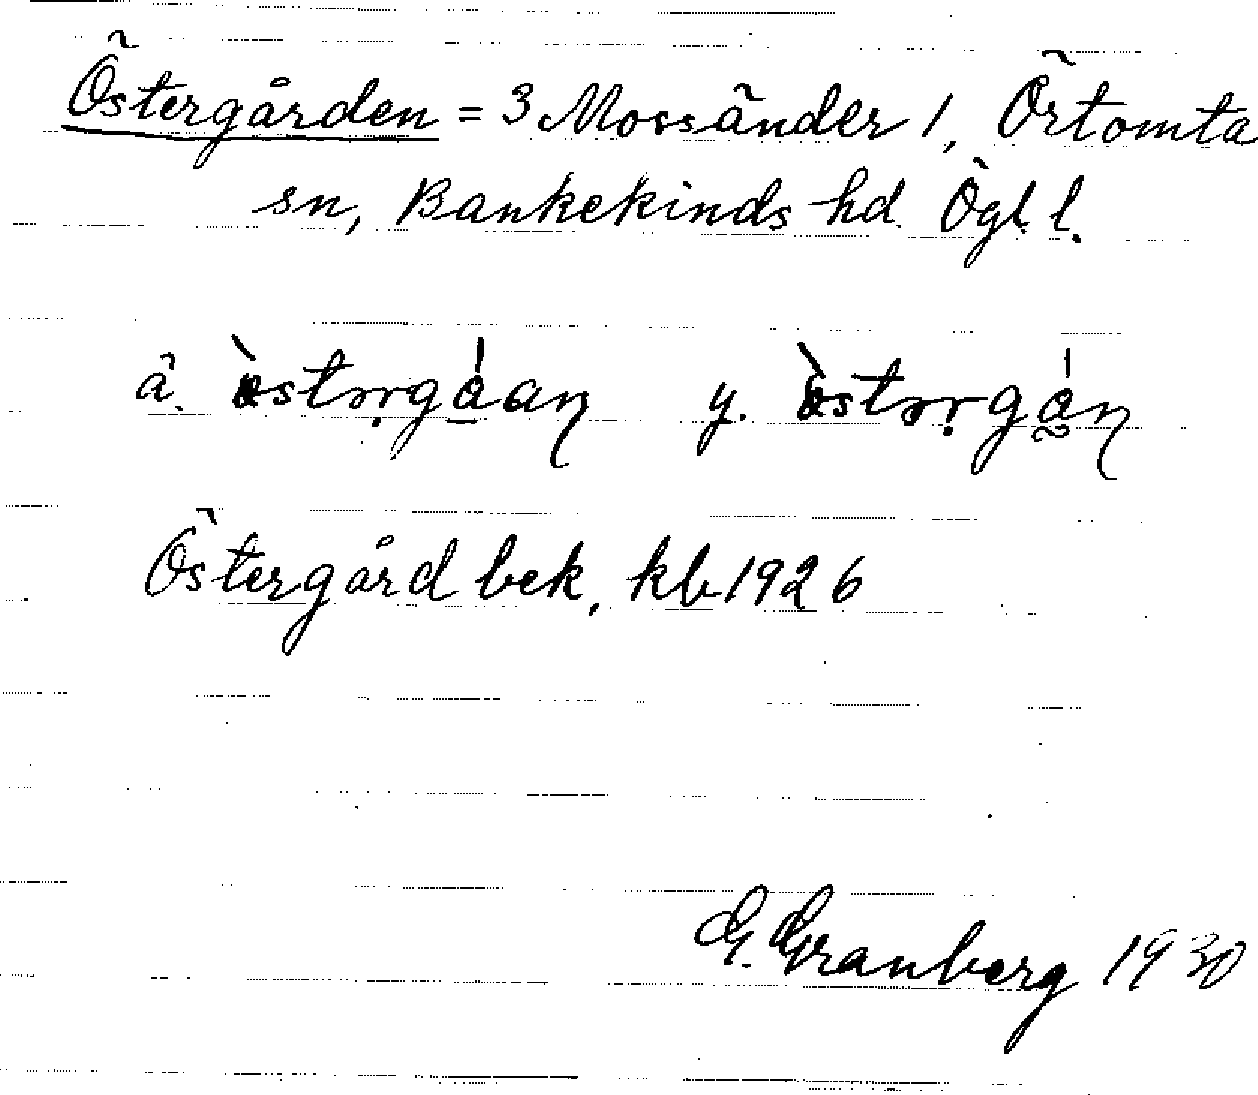 Östergården = 3 Mossänder 1, Örtomta
sn, Bankekinds hd Ögl. l.
ä. y.
Östergård bek, kb 1926
G. Granberg 1930